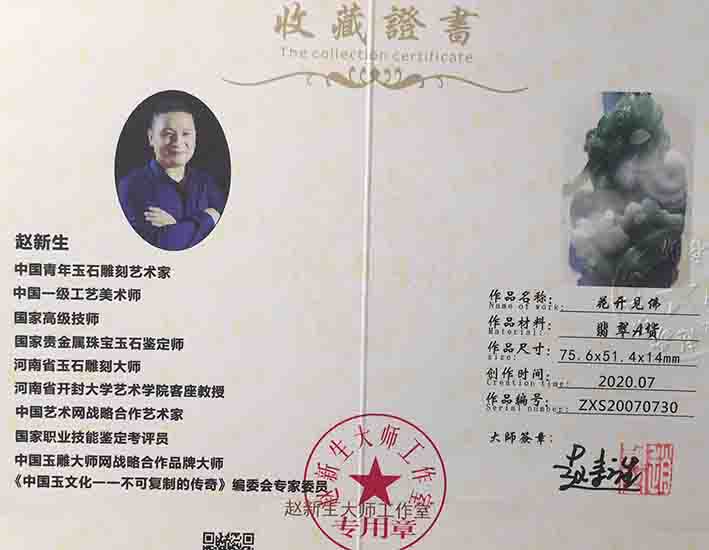 收藏證書
The collection certificate
赵新生
中国青年玉石雕刻艺术家
中国一级工艺美术师
国家高级技师
国家贵金属珠宝玉石鉴定师
河南省玉石雕刻大师
河南省开封大学艺术学院客座教授
中国艺术网战略合作艺术家
国家职业技能鉴定考评员
中国玉雕大师网战略合作品牌大师
《中国玉文化一一不可复制的传奇》编委会专家委员
赵新生大师工作室
赵新生大师工作室
专用章
作品名称: 花开见佛
Name of work:
作品材料: 翡翠A货
Material:
作品尺寸: 75.6x51.4x14mm
size:
创作时间: 2020.07
Creation time:
作品编号: ZXS20070730
Serial number:
大师签章:
赵新生